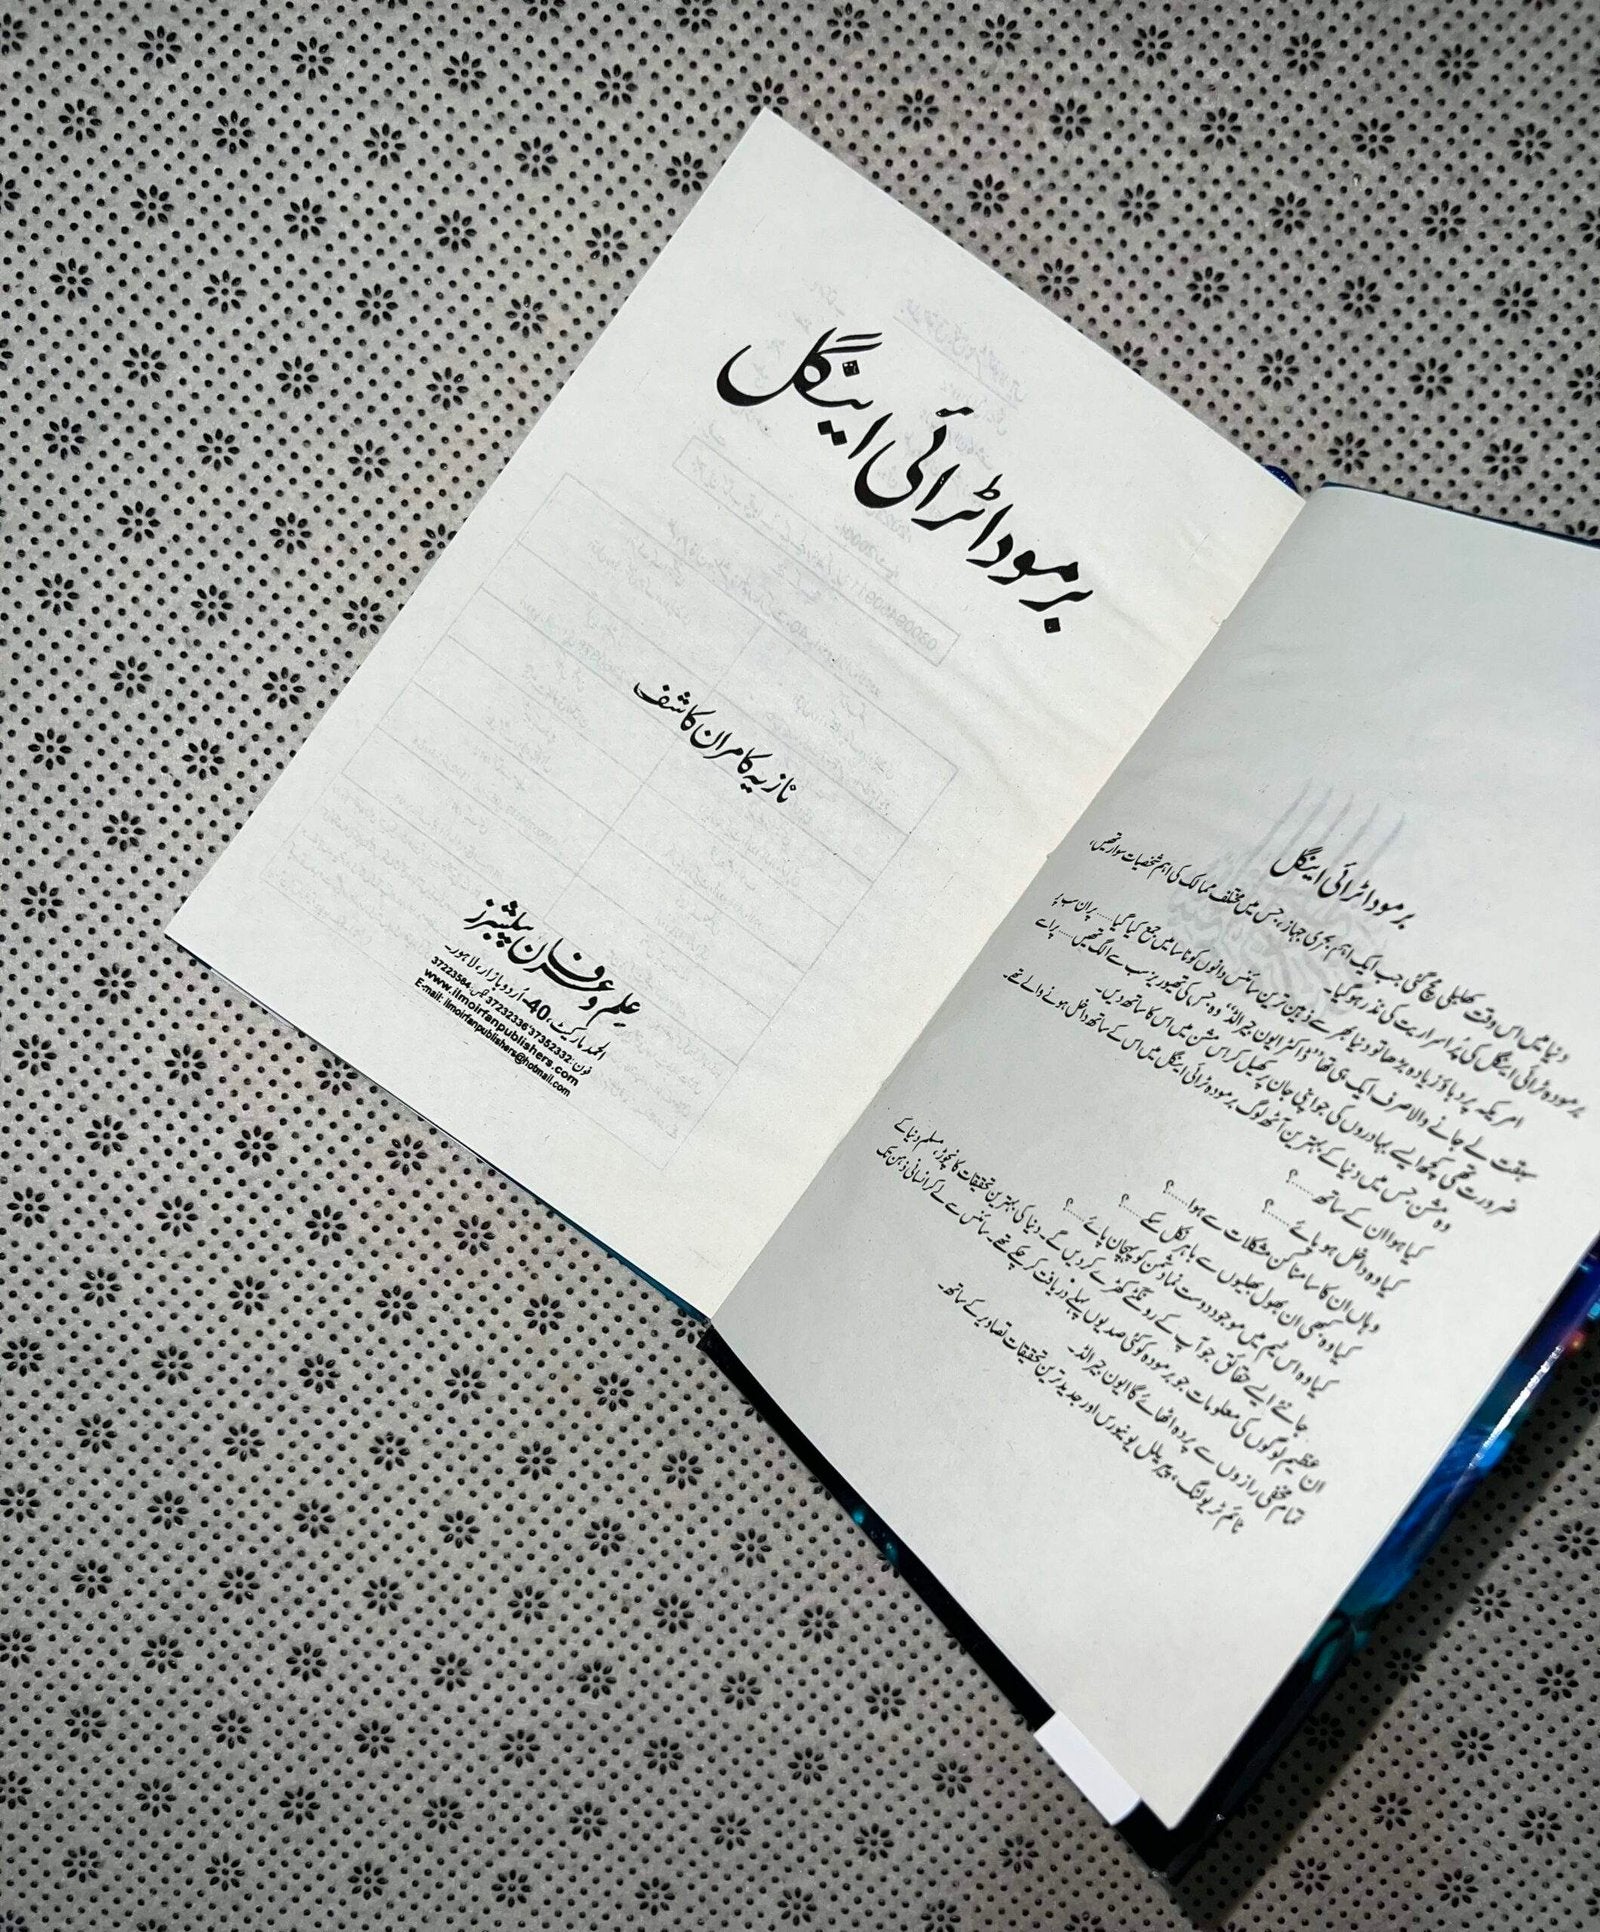 برمودا ٹرائی اینگل
نازیہ کامران کاشف
علم و عرفان پبلشرز
الحمد مارکیٹ، 40-اُردو بازار، لاہور۔
فون: 37352332 37232336 فیکس: 37223584
www.ilmoirfanpublishers.com
E-mail: ilmoirfanpublishers@hotmail.com
برمودا ٹرائی اینگل
دنیا میں اس وقت کھلبلی مچ گئی جب ایک اہم بحری جہاز، جس میں مختلف ممالک کی اہم شخصیات سوار تھیں،
برمودہ ٹرائی اینگل کی پُر اسراریت کی نذر ہو گیا۔
امریکہ پر دباؤ زیادہ بڑھا تو دنیا بھر سے ذہین ترین سائنس دانوں کو ناسا میں جمع کیا گیا...... پر ان سب پر
سبقت لے جانے والا صرف ایک ہی تھا "ڈاکٹر ایون جیرالڈ" وہ، جس کی تھیوریز سب سے الگ تھیں...... پر اسے
ضرورت تھی کچھ ایسے بہادروں کی جو اپنی جان پر کھیل کر اس مشن میں اس کا ساتھ دیں۔
وہ مشن جس میں دنیا کے بہترین آٹھ لوگ برمودہ ٹرائی اینگل میں اس کے ساتھ داخل ہونے والے تھے۔
کیا ہوا ان کے ساتھ......؟
کیا وہ داخل ہو پائے......؟
وہاں ان کا سامنا کن مشکلات سے ہوا......؟
کیا وہ کبھی ان بھول بھلیوں سے باہر نکل سکے......؟
کیا وہ اس ٹیم میں موجود دوست نما دشمن کو پہچان پائے......؟
جانئے ایسے حقائق جو آپ کے رونگٹے کھڑے کر دیں گے۔ دنیا کی بہترین تحقیقات کا نچوڑ، مسلم دنیا کے
ان عظیم لوگوں کی معلومات جو برمودہ کو کئی صدیوں پہلے دریافت کر چکے تھے۔ سائنس سے لے کر انسانی ذہن تک
تمام مخفی رازوں سے پردہ اٹھائے گا ایون جیرالڈ۔
ٹائم ٹریولنگ، پیریلل یونیورس اور جدید ترین تحقیقات تصاویر کے ساتھ۔